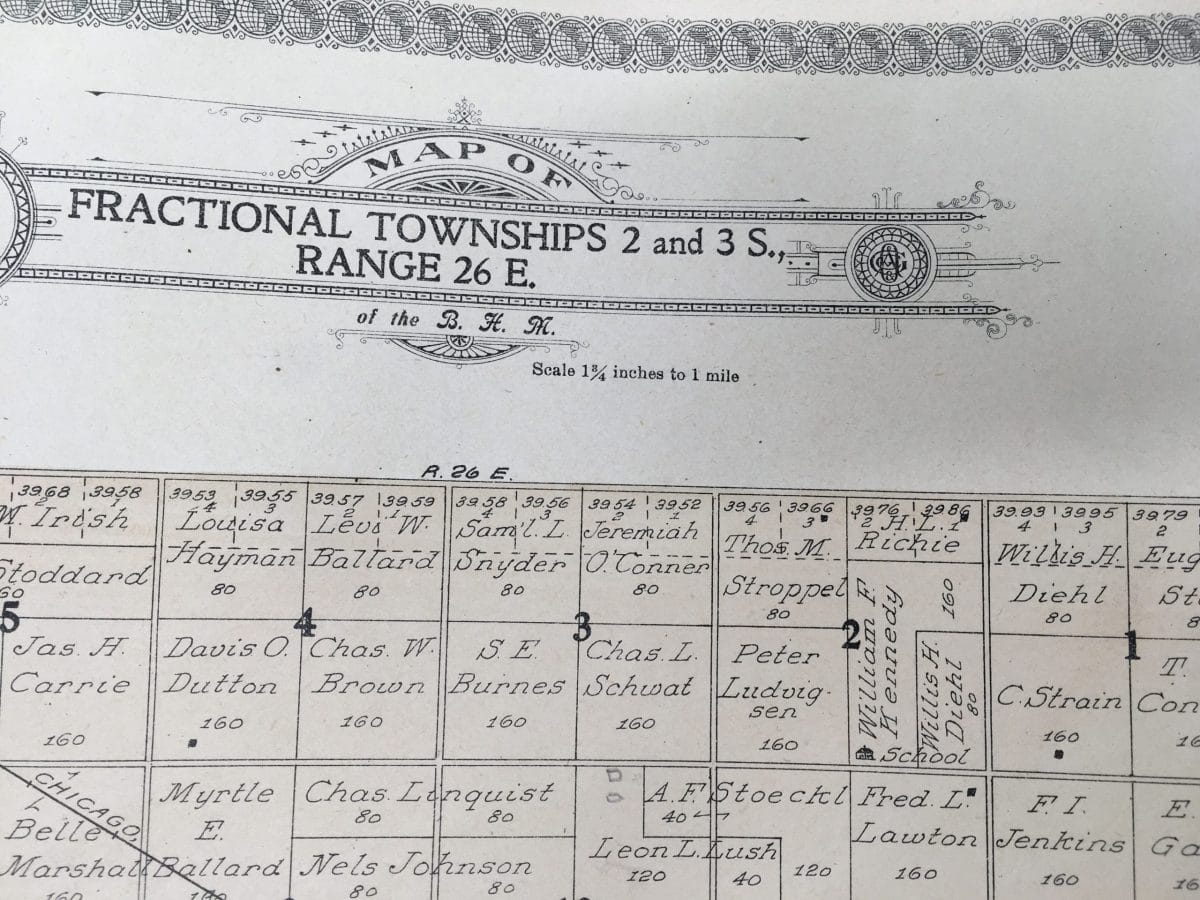 MAP OF
FRACTIONAL TOWNSHIPS 2 and 3 S.,
RANGE 26 E.
of the B. H. M.
Scale 1¾ inches to 1 mile
R. 26 E.
39.68 39.58 39.53 39.55 39.57 39.59 39.58 39.56 39.54 39.52 39.56 39.66 39.76 39.86 39.93 39.95 39.79
2 1 4 3 2 1 4 3 2 1 4 3 2 1 4 3 2
Irish
Stoddard
60
5
Jas. H.
Carrie
160
Louisa
Hayman
80
Levi W.
Ballard
80
4
Davis O.
Dutton
160
Chas. W.
Brown
160
Sam'l. L.
Snyder
80
Jeremiah
O'Conner
80
3
S. E.
Burnes
160
Chas. L.
Schwat
160
Thos. M.
Stroppel
80
H. L.
Richie
2
William F.
Kennedy
160
Peter
Ludvig-
sen
160
Willis H.
Diehl
80
School
Willis H.
Diehl
80
Eug
St
8
1
C. Strain
160
T.
Con
16
CHICAGO,
Belle
Marshall
160
Myrtle
E.
Ballard
160
Chas. Linquist
80 80
Nels Johnson
80 80
A. F. Stoeckl
40
Leon L. Lush
120 40 120
Fred. L.
Lawton
160
F. I.
Jenkins
160
E.
Ga
16